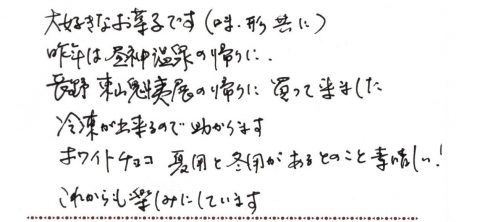 大好きなお菓子です(味.形 共に)
昨年は昼神温泉の帰りに.
長野 東山魁夷展の帰りに 買って来ました
冷凍が出来るので助かります
ホワイトチョコ 夏用と冬用があるとのこと素晴しい!
これからも楽しみにしています